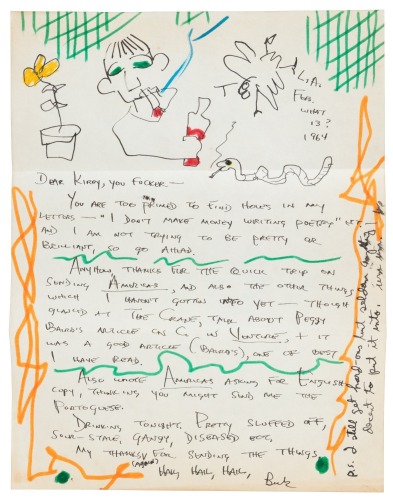 L.A.
Feb.
WHAT
13?
1964
DEAR KIRBY, YOU FUCKER—
YOU ARE TOO PRIMED TO FIND HOLES IN MY
LETTERS — "I DON'T MAKE MONEY WRITING POETRY"
AND I AM NOT TRYING TO BE PRETTY OR
BRILLIANT, SO GO AHEAD.
ANYHOW, THANKS FOR THE QUICK TRIP ON
SENDING AMERICAS, AND ALSO THE OTHER THINGS
WHICH I HAVEN'T GOTTEN INTO YET — THOUGH
GLANCED AT THE CRANE, TALK ABOUT PEGGY
BAIRD'S ARTICLE ON C. IN VENTURE, + IT
WAS A GOOD ARTICLE (BAIRD'S), ONE OF BEST
I HAVE READ.
ALSO WROTE AMERICAS ASKING FOR ENGLISH
COPY, THINKING YOU MIGHT SEND ME THE
PORTOGUESE.
DRINKING TONIGHT, PRETTY SLUFFED OFF,
SOUR-STALE, DISEASED EGG,
MY THANKS (AGAIN) FOR SENDING THE THINGS.
HAIL, HAIL, HAIL,
Buk
p.s. I still get hard-ons but seldom anything
decent to put it into.